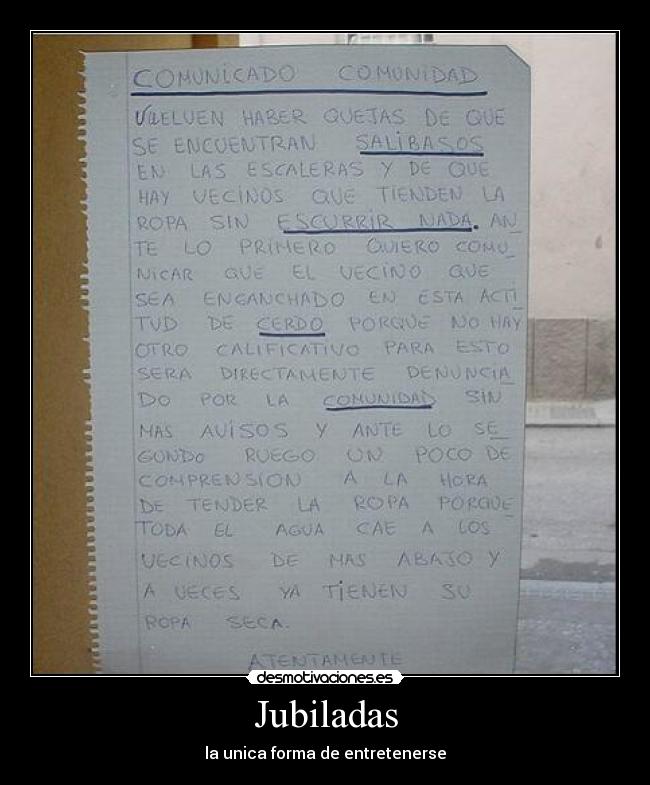 COMUNICADO COMUNIDAD
VUELVEN HABER QUEJAS DE QUE
SE ENCUENTRAN SALIBASOS
EN LAS ESCALERAS Y DE QUE
HAY VECINOS QUE TIENDEN LA
ROPA SIN ESCURRIR NADA. AN_
TE LO PRIMERO QUIERO COMU_
NICAR QUE EL VECINO QUE
SEA ENGANCHADO EN ESTA ACTI_
TUD DE CERDO PORQUE NO HAY
OTRO CALIFICATIVO PARA ESTO
SERA DIRECTAMENTE DENUNCIA_
DO POR LA COMUNIDAD SIN
MAS AVISOS Y ANTE LO SE_
GUNDO RUEGO UN POCO DE
COMPRENSION A LA HORA
DE TENDER LA ROPA PORQUE_
TODA EL AGUA CAE A LOS
VECINOS DE MAS ABAJO Y
A VECES YA TIENEN SU
ROPA SECA.
ATENTAMENTE
desmotivaciones.es
Jubiladas
la unica forma de entretenerse